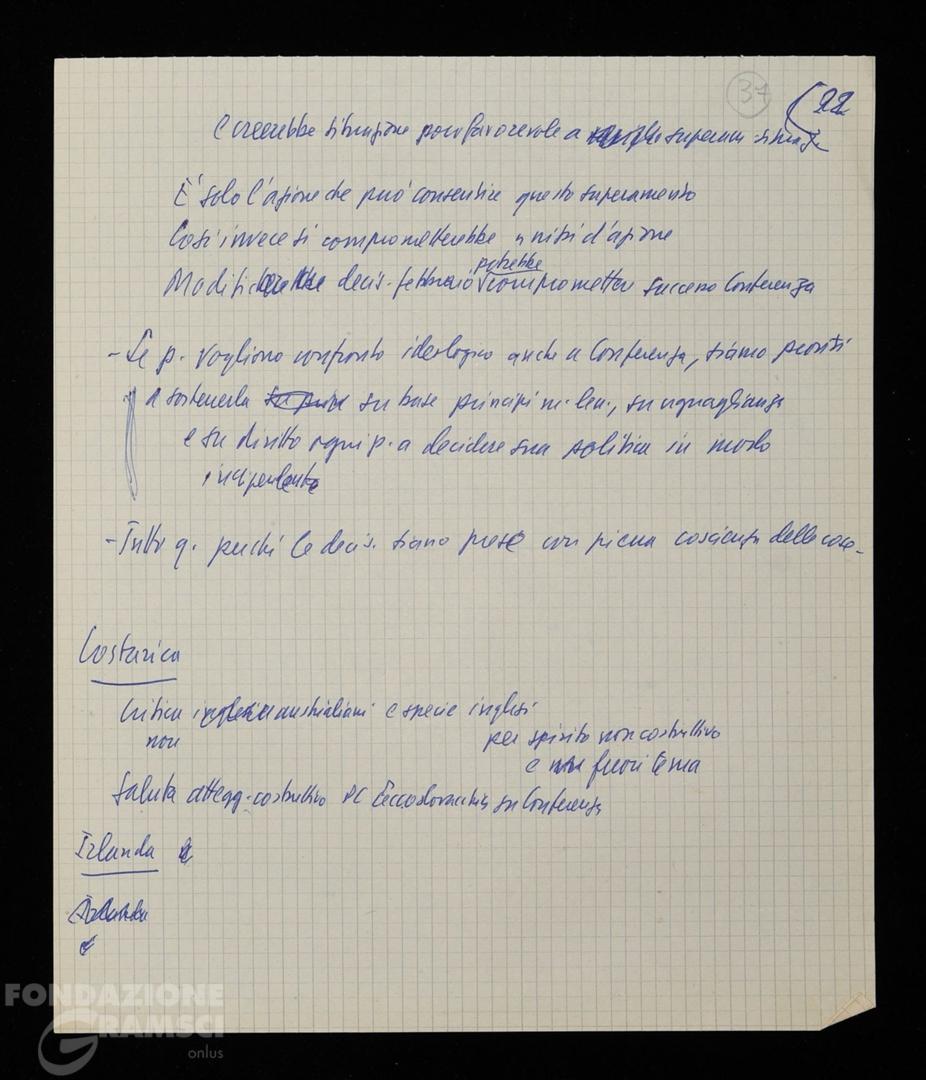 37
22
e creerebbe situazione poco favorevole a superam.
È solo l'azione che può consentire questo superamento
Così invece si comprometterebbe unità d'azione
potrebbe
decis. febbraio compromettere successo Conferenza
- Se p. vogliono confronto ideologico anche a Conferenza, siamo pronti
a sostenerla su base principi m. len., su uguaglianza
e su diritto ogni p. a decidere sua politica in modo
indipendente
- Tutto q. perché le decis. siano prese con piena coscienza delle cose -
Costarica
Critica australiani e specie inglesi
non
per spirito non costruttivo
e fuori tema
Saluta attegg. costruttivo PC Cecoslovacchia su Conferenza
Irlanda
FONDAZIONE
GRAMSCI
onlus